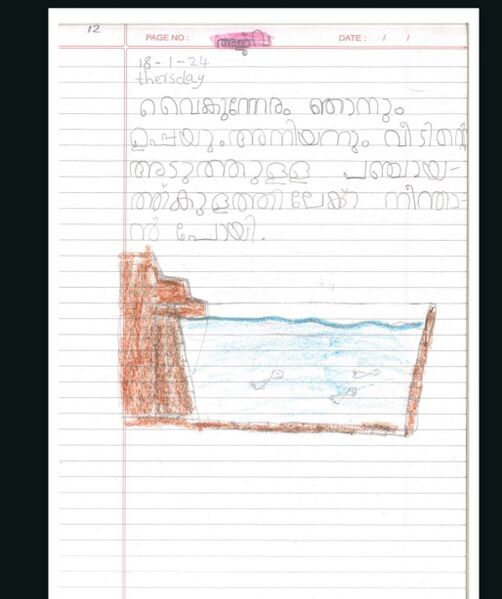 12
PAGE NO :
DATE : / /
18-1-24
thersday
വൈകുന്നേരം ഞാനും
ഉപ്പയും അനിയനും വീടിന്റെ
അടുത്തുള്ള പഞ്ചായ-
ത്ത്കുളത്തിലേക്ക് നീന്താ-
ൻ പോയി.